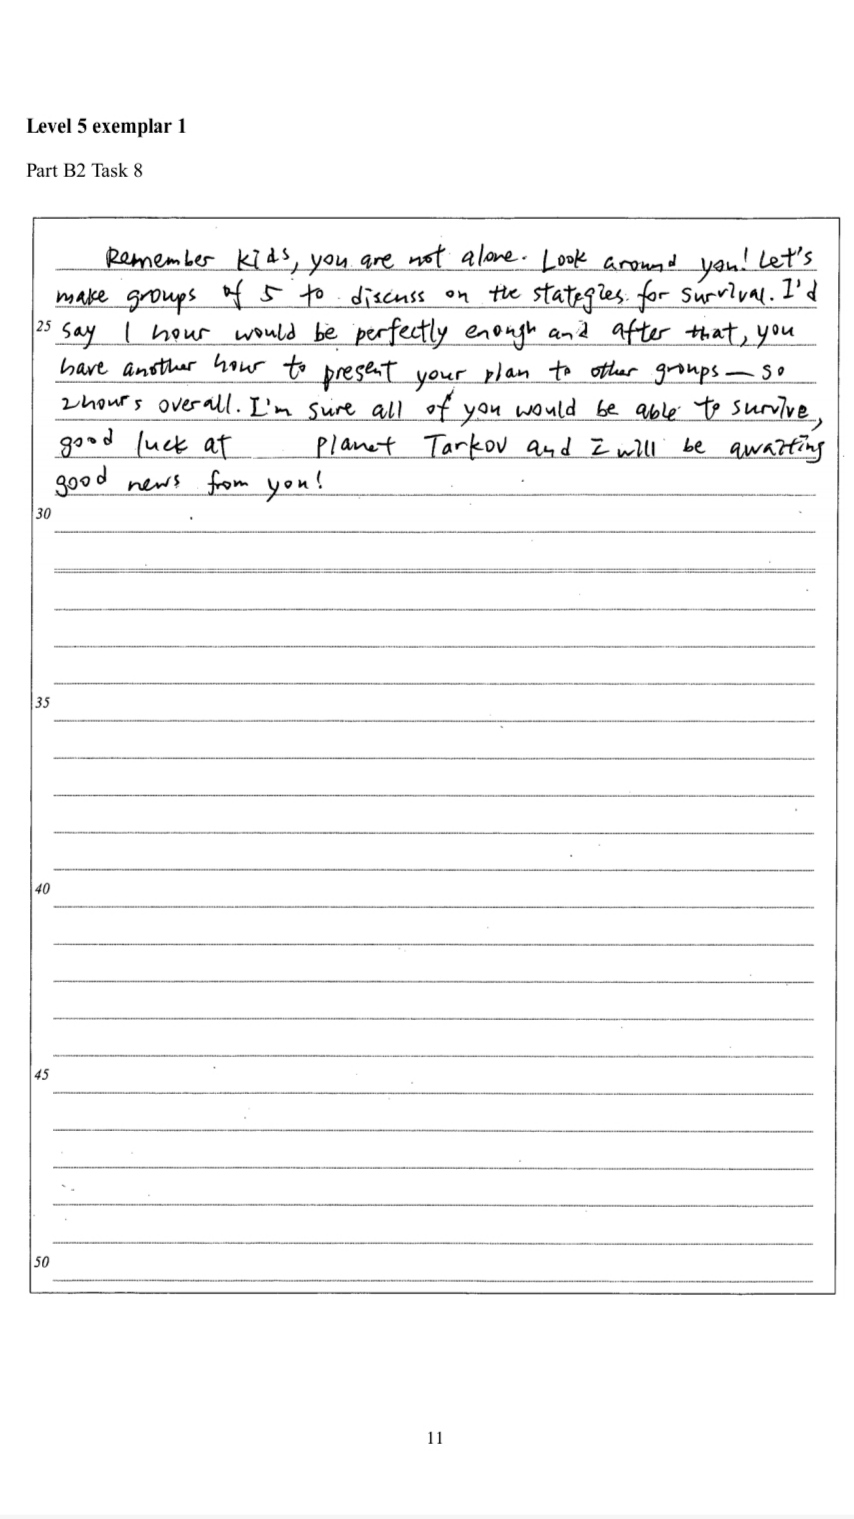 Level 5 exemplar 1
Part B2 Task 8
Remember kids, you are not alone. Look around you! Let's
make groups of 5 to discuss on the stategies for survival. I'd
25 say 1 hour would be perfectly enough and after that, you
have another hour to present your plan to other groups — so
2hours overall. I'm sure all of you would be able to survive,
good luck at Planet Tarkov and I will be awaiting
good news from you!
30
35
40
45
50
11